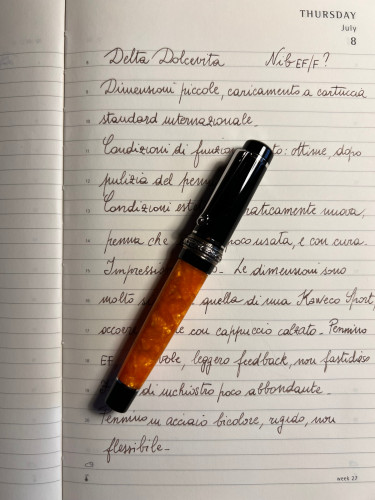 THURSDAY
July
8
Delta Dolcevita Nib EF/F?
Dimensioni piccole, caricamento a cartuccia
standard internazionale.
Condizioni di : ottime, dopo
pulizia del
Condizioni praticamente nuova,
penna che poco usata, e con cura.
Le dimensioni sono
molto quella di una Kaweco Sport,
con cappuccio calzato. Pennino
EF leggero feedback, non fastidioso
di inchiostro poco abbondante.
Pennino in acciaio bicolore, rigido, non
flessibile.
8
9
10
11
12
13
14
15
16
17
18
19
20
week 27